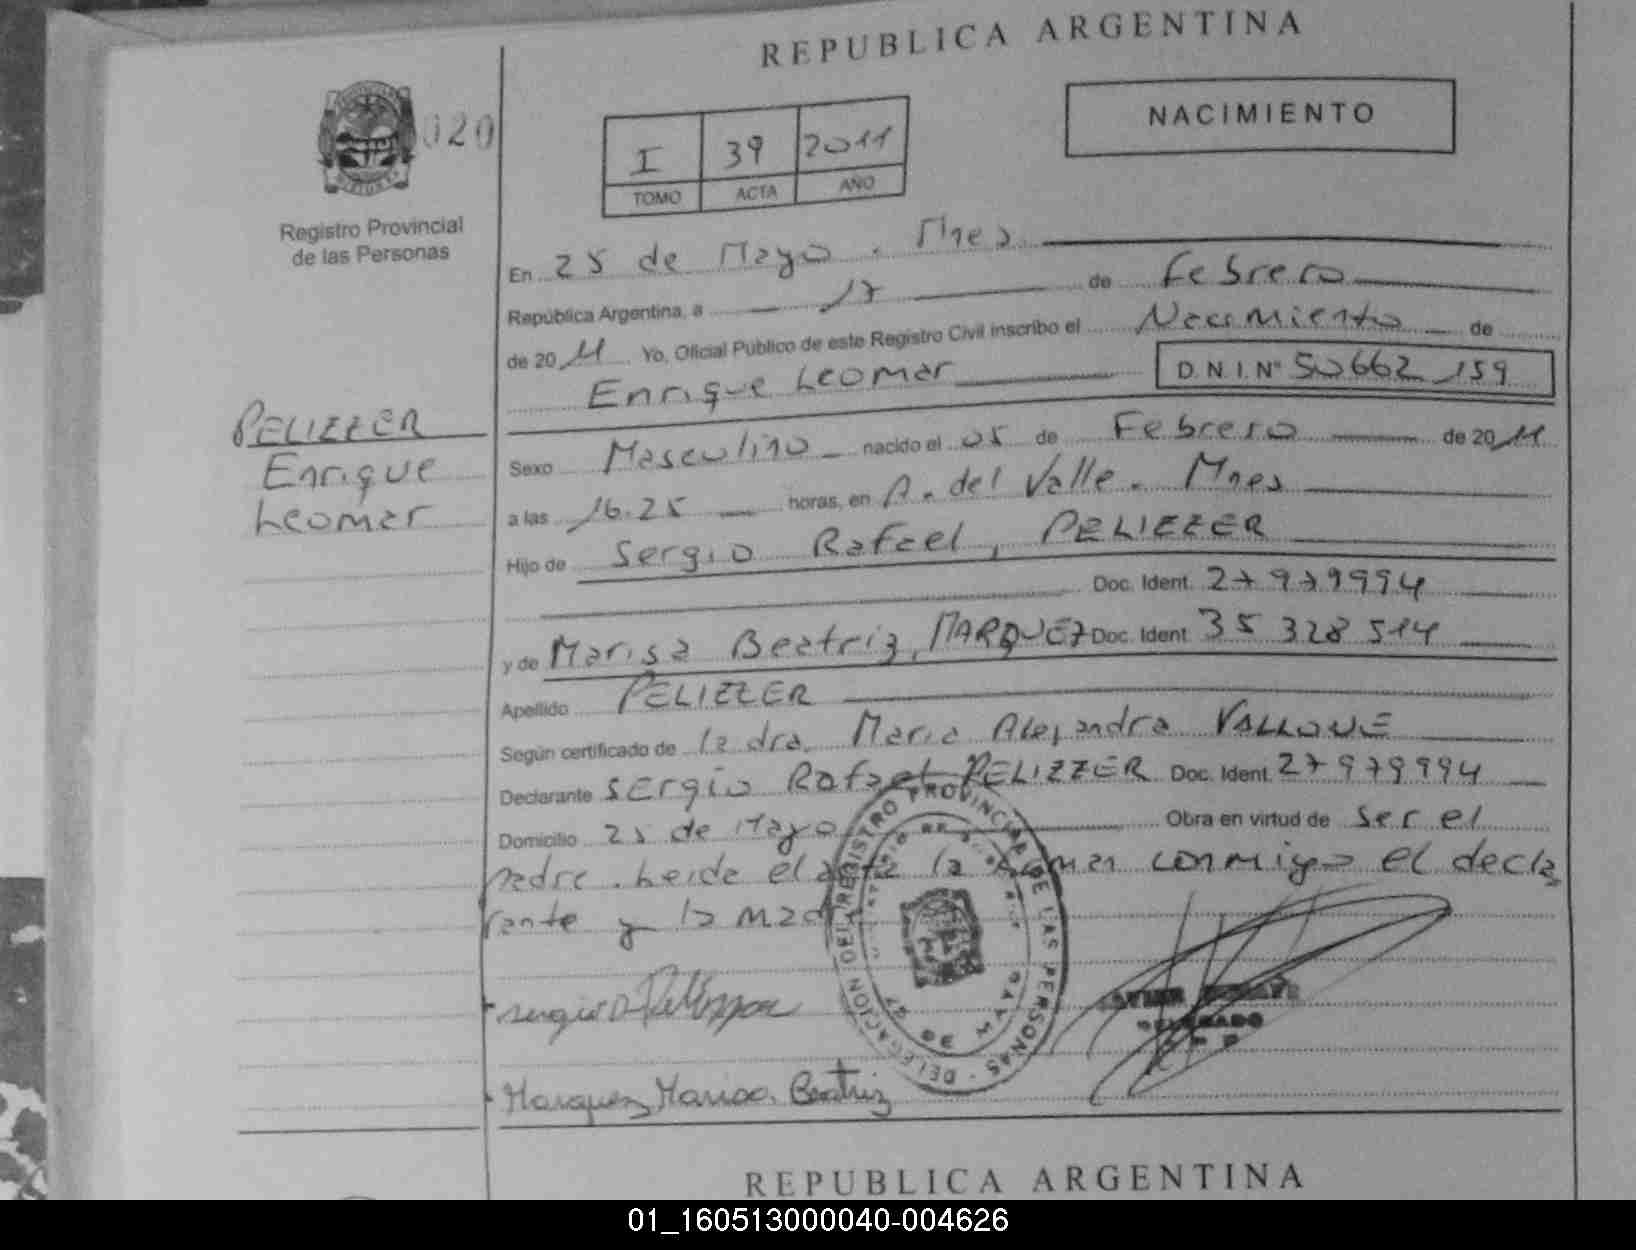 REPUBLICA ARGENTINA
NACIMIENTO
020
I 39 2011
TOMO ACTA AÑO
Registro Provincial
de las Personas
En 25 de Mayo . Mnes
República Argentina, a 17 de Febrero
de 2011 Yo, Oficial Público de este Registro Civil inscribo el Nacimiento de
Enrique Leomar D.N.I.Nº 50662 159
PELIZZER
Enrique
Leomar
Sexo Masculino nacido el 05 de Febrero de 2011
a las 16.25 horas, en A. del Valle . Mnes
Hijo de Sergio Rafael, PELIZZER
Doc. Ident. 27979994
y de Marisa Beatriz, MARQUEZ Doc. Ident. 35 328 514
Apellido PELIZZER
Según certificado de la dra. Maria Alejandra
Declarante Sergio Rafael PELIZZER Doc. Ident. 27979994
Domicilio 25 de Mayo Obra en virtud de ser el
padre . Leida el acta la conmigo el decla
rante y la madre
DELEGACION DEL REGISTRO PROVINCIAL DE LAS PERSONAS
Sergio R
Marquez Marisa Beatriz
DELEGADO
REPUBLICA ARGENTINA
01_160513000040-004626